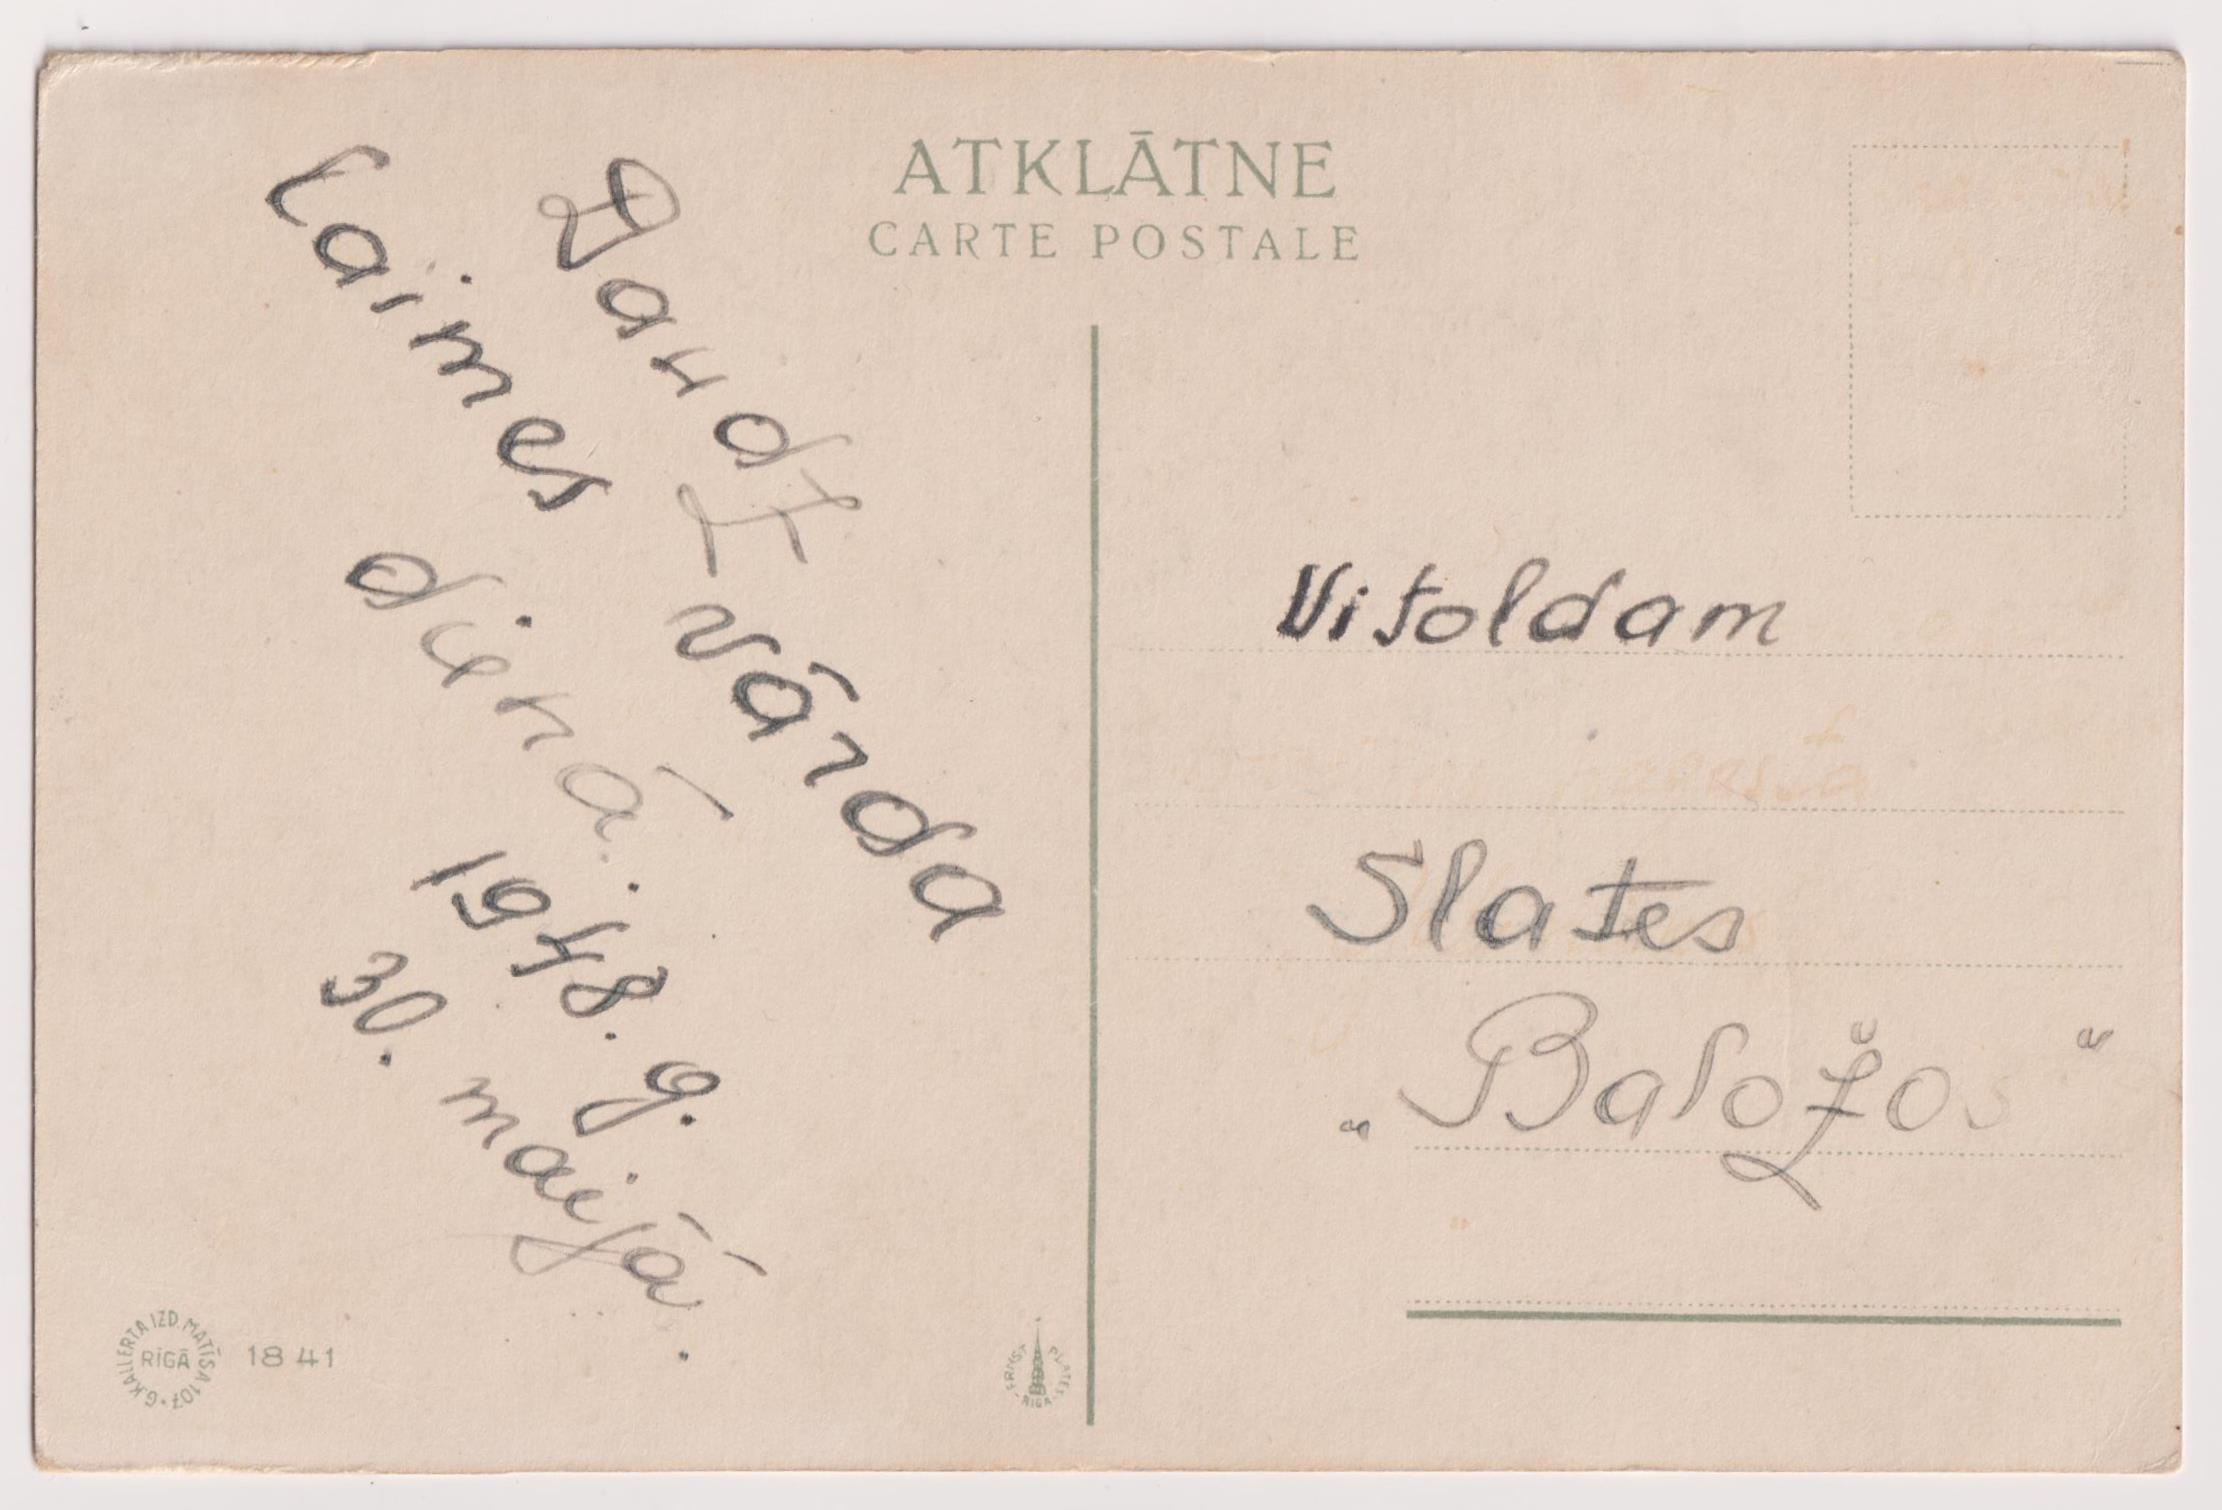 ATKLĀTNE
CARTE POSTALE
Daudz
laimes
vārda
dienā.
1948. g.
30. maijā.
Vitoldam
Slates
„Baložos“
G. KALLERTA IZD. MATĪSA 107
RĪGĀ
1841
ERNST PLATES
RIGA